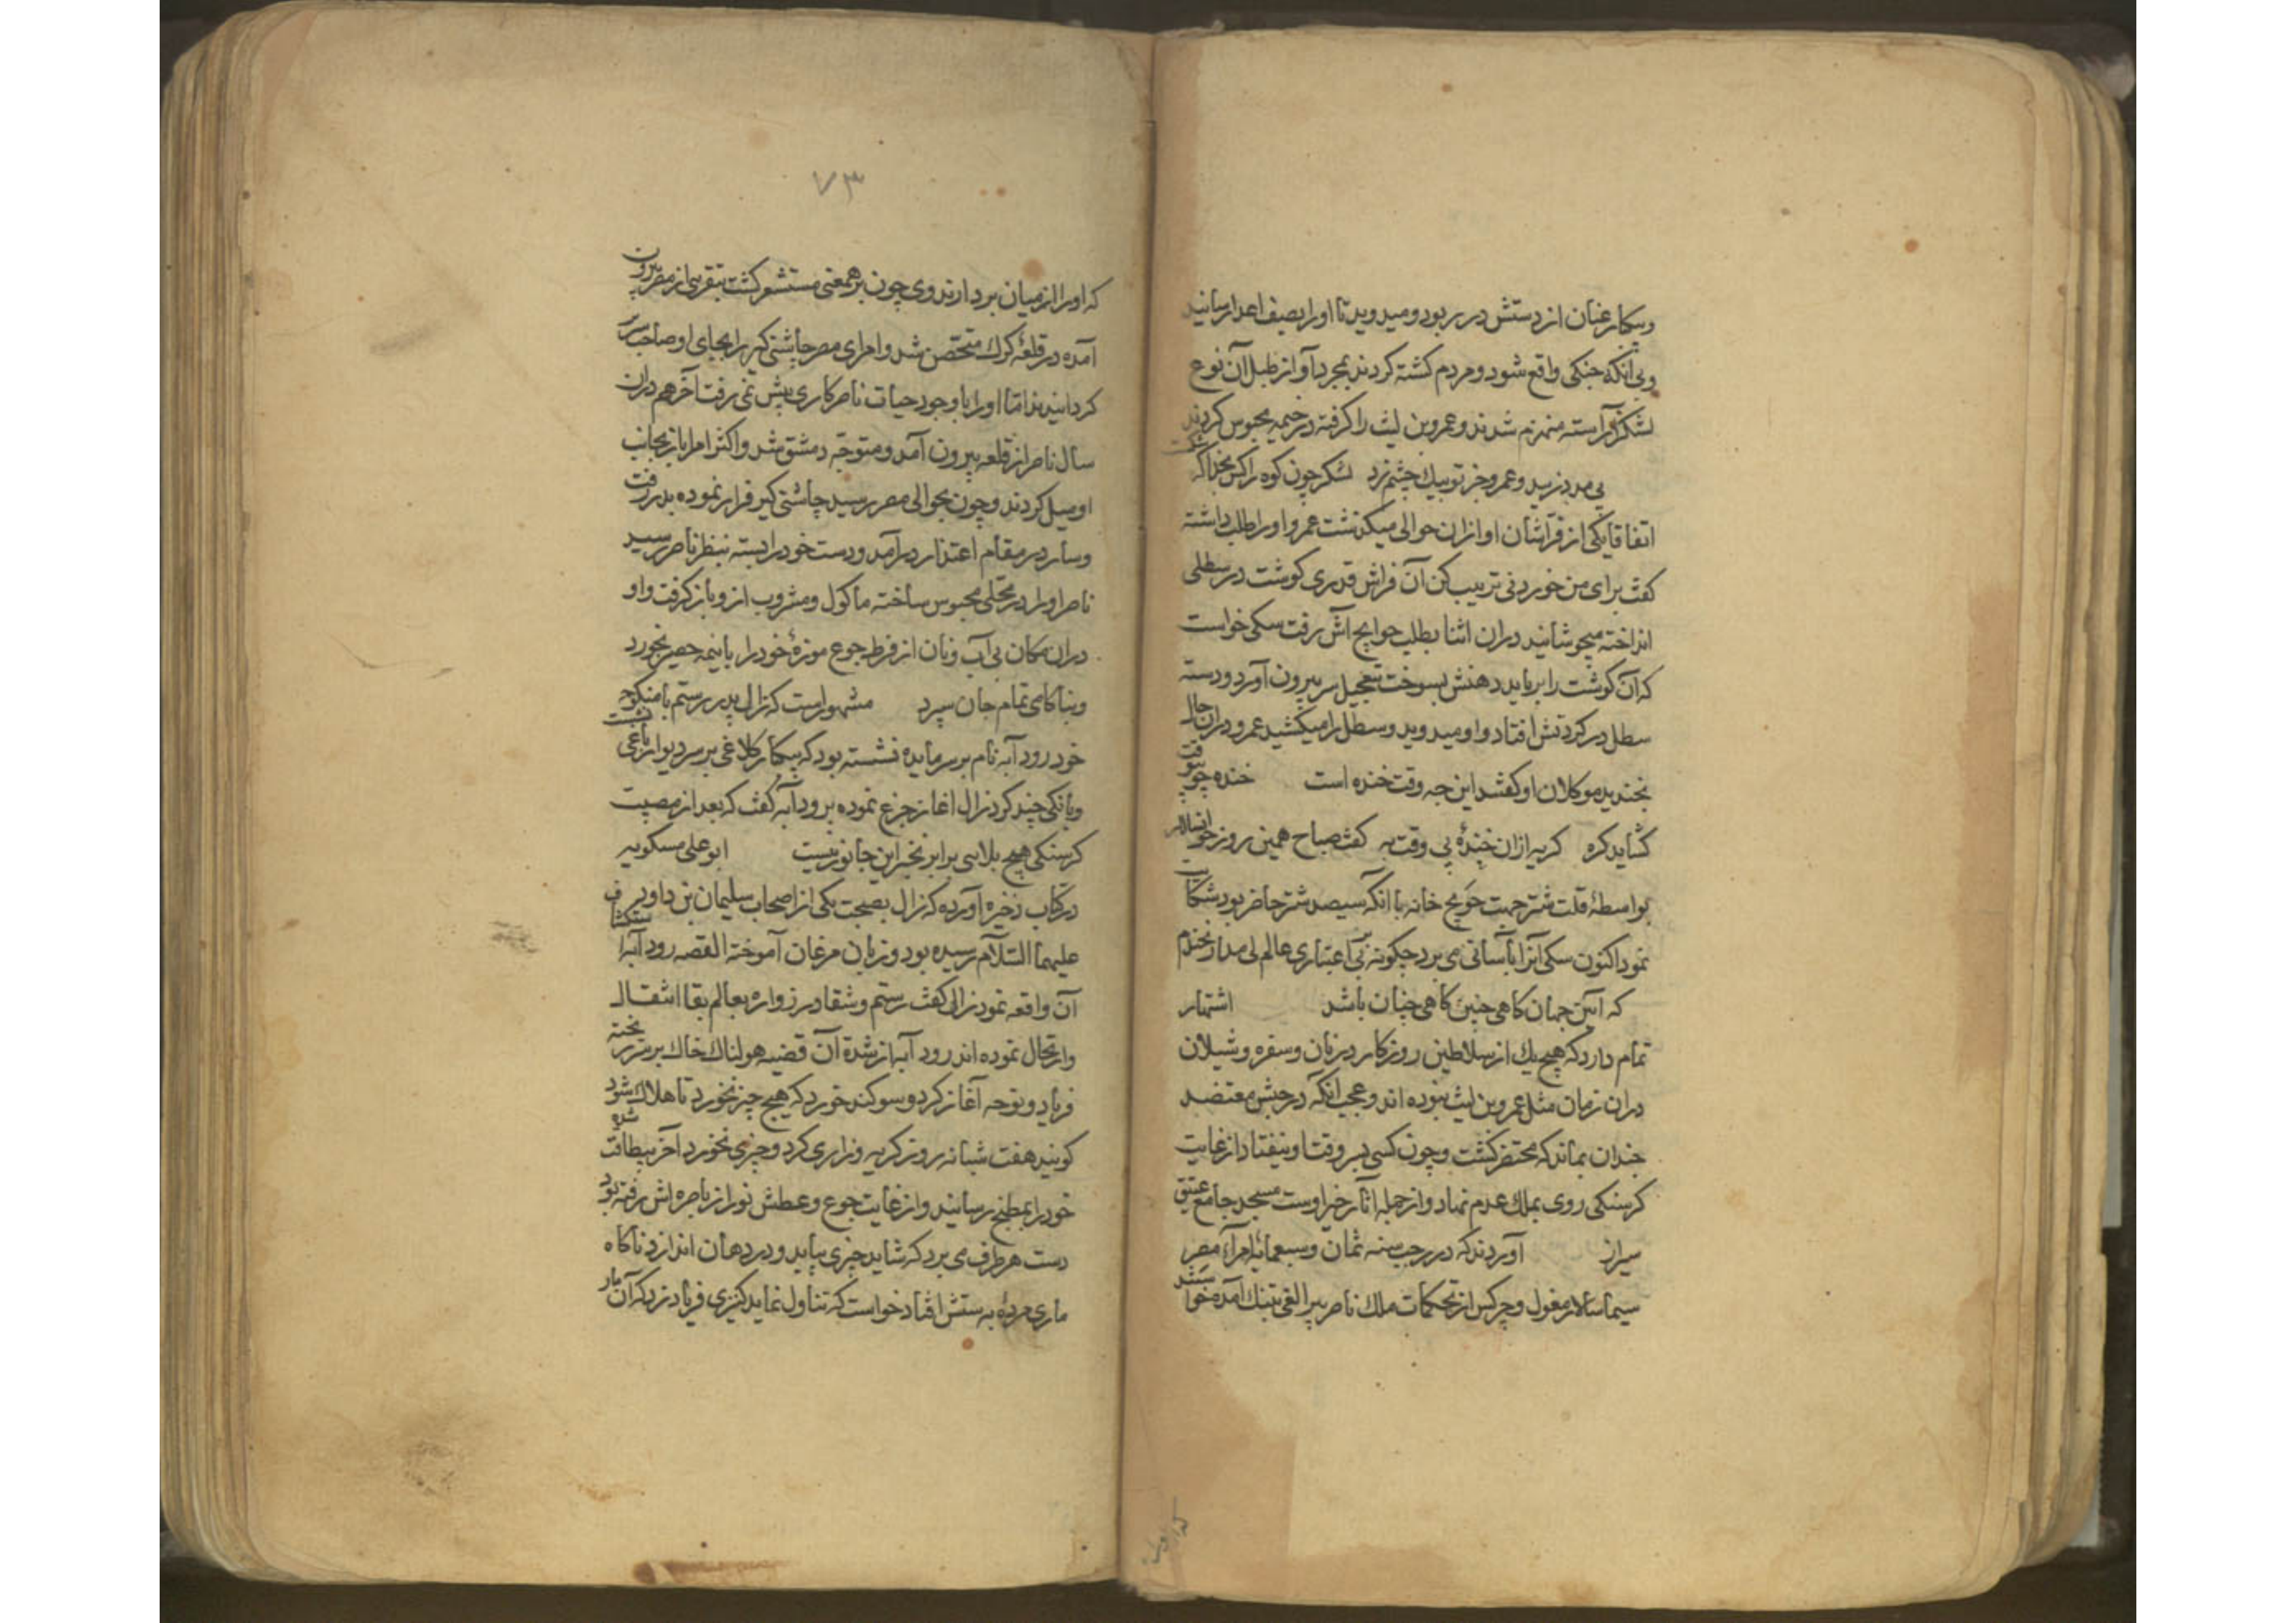 و بیکبار عنان از دستش در ربود و میدوید تا او را بصف اعدا رسانید
و بی آنکه جنکی واقع شود و مردم کشته کردند بمجرد آواز طبل آن نوع
لشکر آراسته منهزم شدند و عمرو بن لیث را کرفته در خیمه محبوس کردند
لشکر چون کوه را
اتفاقا یکی از فراشان او ازان حوالی میکذشت عمرو او را طلب داشته
کفت برای من خوردنی ترتیب کن آن فراش قدری کوشت در سطلی
انداخته میجوشانید دران اثنا بطلب حوایج آش رفت سکی خواست
که آن کوشت را برباید دهنش بسوخت بتعجیل سر بیرون آورد و دسته
سطل در کردنش افتاد و او میدوید و سطل را میکشید عمرو دران حال
بخندید موکلان او کفتند این چه وقت خنده است خنده چو بیوقت
کشاید کره کریه ازان خندهٔ بی وقت به کفت صباح همین روز خوانسالار
بواسطهٔ قلت شتر جهت حویج خانه با انکه سیصد شتر حاضر بود شکایت
نمود اکنون سکی آنرا بآسانی می برد چکونه بر بی اعتباری عالم بی مدار نخندم
که آیین جهان کاهی چنین کاهی چنان باشد اشتهار
تمام دارد که هیچ یک از سلاطین روزکار در نان و سفره و شیلان
دران زمان مثل عمرو بن لیث نبوده اند و عجب انکه در حبس معتضد
چندان بماند که محتضر کشت و چون کسی بر وقت او نیفتاد از غایت
کرسنکی روی بملک عدم نهاد و از جمله آثار خیر اوست مسجد جامع عتیق
شیراز آوردند که در رجب سنه ثمان و سبعمائه امراء مصر
سیما سالار مغول و چرکس از تحکمات ملک ناصر بتنک آمده خواستند
۷۳
که او را از میان بردارند وی چون برهمعنی مستشعر کشت بتقریبی از مصر بیرون
آمده در قلعهٔ کرک متحصن شد و امرای مصر چاشنی کیر را بجای او صاحب سریر
کردانیدند اما او را با وجود حیات ناصر کاری پیش نمی رفت آخر هم دران
سال ناصر از قلعه بیرون آمد و متوجه دمشق شد و اکثر امرا باز بجانب
او میل کردند و چون بحوالی مصر رسید چاشنی کیر فرار نموده بدر رفت
و سار در مقام اعتذار درآمد و دست خود را بسته بنظر ناصر رسید
ناصر او را در محلی محبوس ساخته ماکول و مشروب ازو باز کرفت و او
دران مکان بی آب و نان از فرط جوع موزهٔ خود را با نیمه حصیر بخورد
و بناکامی تمام جان سپرد مشهور است که زال پدر رستم با منکوحه
خود رودابه نام بر سر مایده نشسته بود که بیکبار کلاغی بر سر دیوار باغی نشست
و بانکی چند کرد زال اغاز جزع نموده برودابه کفت که بعد از مصیبت
کرسنکی هیچ بلایی برابر بخبر این جانور نیست ابو علی مسکویه
در کتاب ذخیره آورده که زال بصحبت یکی از اصحاب سلیمان بن داود
علیهما السلام رسیده بود و زبان مرغان آموخته القصه رودابه استکشاف
آن واقعه نمود زال کفت رستم و شغاد و زواره بعالم بقا انتقال
و ارتحال نموده اند رودابه از شدة آن قضیه هولناک خاک بر سر ریخته
فریاد و نوحه آغاز کرد و سوکند خورد که هیچ چیز نخورد تا هلاک شود
کویند هفت شبانه روز کریه و زاری کرد و چیزی نخورد آخر بیطاقت شده
خود را بمطبخ رسانید و از غایت جوع و عطش نور از باصره اش رفته بود
دست هر طرف می برد که شاید چیزی بیابد و در دهان اندازد ناکاه
ماری مرده بدستش افتاد خواست که تناول نماید کنیزی فریاد زد که آن مار